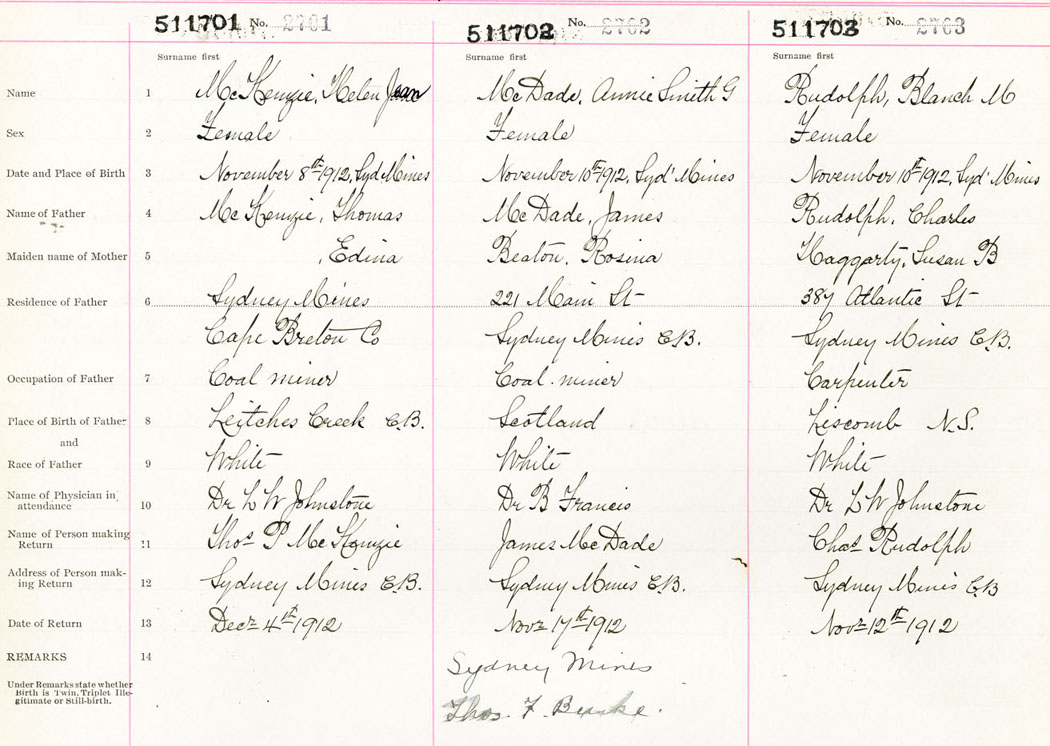 511701 No. 2701 511702 No. 2702 511703 No. 2703
Surname first Surname first Surname first
Name 1 McKenzie, Helen Jean McDade, Annie Smith G Rudolph, Blanch M
Sex 2 Female Female Female
Date and Place of Birth 3 November 8th 1912, Syd Mines November 10th 1912, Syd' Mines November 10th 1912, Syd' Mines
Name of Father 4 McKenzie, Thomas McDade, James Rudolph, Charles
Maiden name of Mother 5 , Edina Beaton, Rosina Haggarty, Susan B
Residence of Father 6 Sydney Mines 221 Main St 387 Atlantic St
Cape Breton Co Sydney Mines C.B. Sydney Mines C.B.
Occupation of Father 7 Coal miner Coal miner Carpenter
Place of Birth of Father 8 Leitches Creek C.B. Scotland Liscomb N.S.
and
Race of Father 9 White White White
Name of Physician in
attendance 10 Dr L W Johnstone Dr B Francis Dr L W Johnstone
Name of Person making
Return 11 Thos P McKenzie James McDade Chas Rudolph
Address of Person mak-
ing Return 12 Sydney Mines C.B. Sydney Mines C.B. Sydney Mines C.B
Date of Return 13 Decr 4th 1912 Novr 17th 1912 Novr 12th 1912
REMARKS 14 Sydney Mines
Under Remarks state whether
Birth is Twin, Triplet Ille-
gitimate or Still-birth.
Thos. F. Burke.